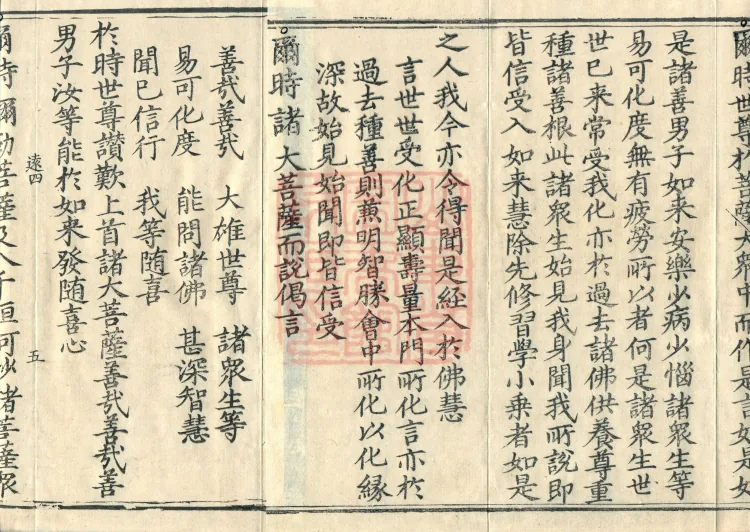 爾時世尊於菩薩大衆中而作是言如是如
是諸善男子如来安樂少病少惱諸衆生等
易可化度無有疲勞所以者何是諸衆生世
世已来常受我化亦於過去諸佛供養尊重
種諸善根此諸衆生始見我身聞我所說即
皆信受入如来慧除先修習學小乗者如是
之人我今亦令得聞是経入於佛慧
言世世受化正顯壽量本門所化言亦於
過去種善則兼明智勝會中所化以化縁
深故始見始聞即皆信受
爾時諸大菩薩而說偈言
善哉善哉 大雄世尊 諸衆生等
易可化度 能問諸佛 甚深智慧
聞已信行 我等随喜
於時世尊讃歎上首諸大菩薩善哉善哉善
男子汝等能於如来發随喜心
遠四 五
爾時彌勒菩薩及八千恒河沙諸菩薩衆